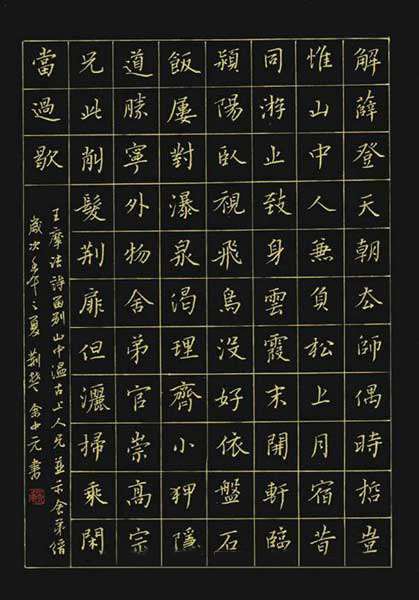 解薜登天朝去師偶時哲豈
惟山中人兼負松上月宿昔
同游止致身雲霞末開軒臨
潁陽臥視飛鳥沒好依盤石
飯屢對瀑泉渴理齊小狎隱
道勝寧外物舍弟官崇高宗
兄此削髮荊扉但灑掃乘閑
當過歇
王摩詰詩留別山中溫古上人兄並示舍弟縉
歲次壬午之夏 荊楚余中元書